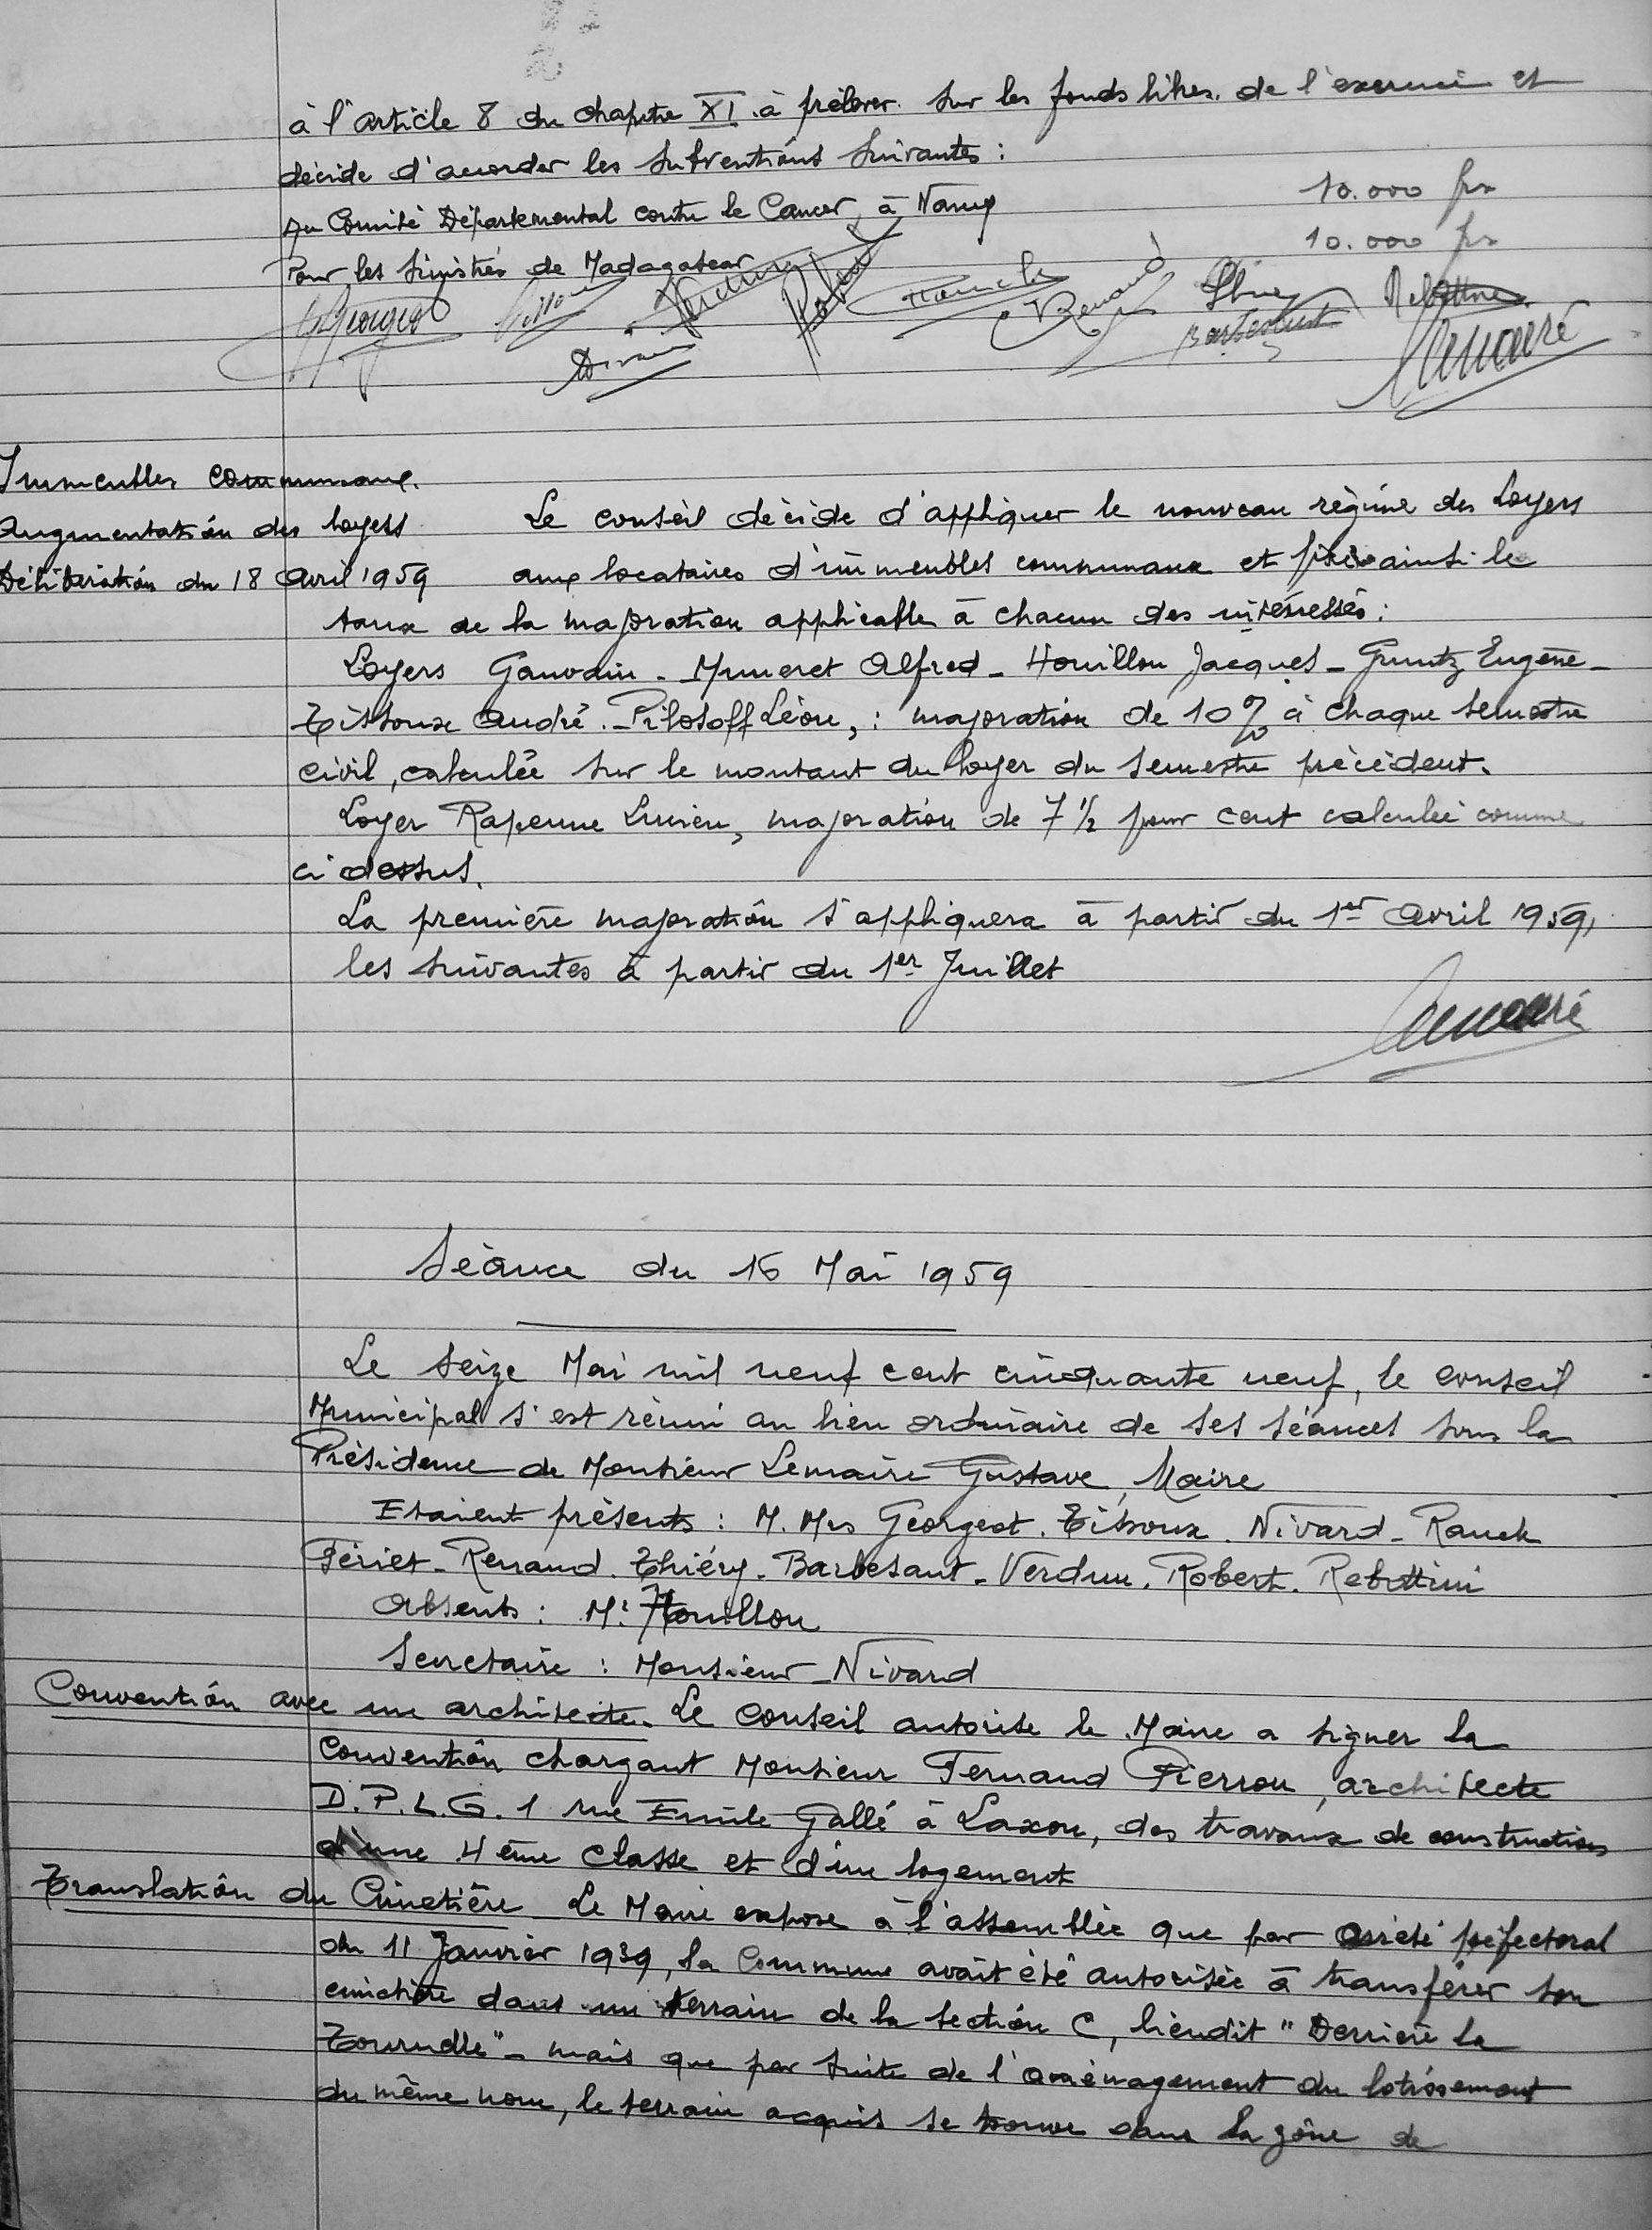 à l'article 8 du chapitre XI à prélever sur les fonds libres de l'exercice et
décide d'accorder les subventions suivantes :
Au Comité Départemental contre le Cancer, à Nancy 10.000 frs
Pour les sinistrés de Madagascar 10.000 frs
Georgeot Verdun Robert Renaud
Barbesant Lemaire
Immeubles communaux.
Augmentation des loyers
Délibération du 18 Avril 1959
Le conseil décide d'appliquer le nouveau régime des Loyers
aux locataires d'immeubles communaux et fixe ainsi le
taux de la majoration applicable à chacun des intéressés :
Loyers Gauvain - Muneret Alfred - Houillon Jacques - Gruntz Eugène -
Tissoux André - Pilosoff Léon, : majoration de 10% à chaque semestre
civil, calculée sur le montant du loyer du semestre précédent.
Loyer Rapenne Lucien, majoration de 7 1/2 pour cent calculée comme
ci dessus.
La première majoration s'appliquera à partir du 1er Avril 1959,
les suivantes à partir du 1er Juillet
Lemaire
Séance du 16 Mai 1959
Le seize Mai mil neuf cent cinquante neuf, le conseil
Municipal s'est réuni au lieu ordinaire de ses séances sous la
Présidence de Monsieur Lemaire Gustave, Maire
Etaient présents : M. Mrs Georgeot. Tissoux. Nivard - Rauch
Fériet - Renaud. Thiéry - Barbesant - Verdun. Robert. Rebottini
Absents : Mr Houillon
Secretaire : Monsieur Nivard
Convention avec un architecte. Le Conseil autorise le Maire a signer la
Convention chargant Monsieur Fernand Pierron, architecte
D.P.L.G. 1 rue Emile Gallé à Laxou, des travaux de construction
d'une 4ème classe et d'un logement
Translation du Cimetière Le Maire expose à l'assemblée que par arrêté préfectoral
du 11 Janvier 1939, la Commune avait été autorisée à transférer son
cimetière dans un terrain de la section C, lieudit "Derrière la
Tournelle" - mais que par suite de l'aménagement du lotissement
du même nom, le terrain acquis se trouve dans la zône de